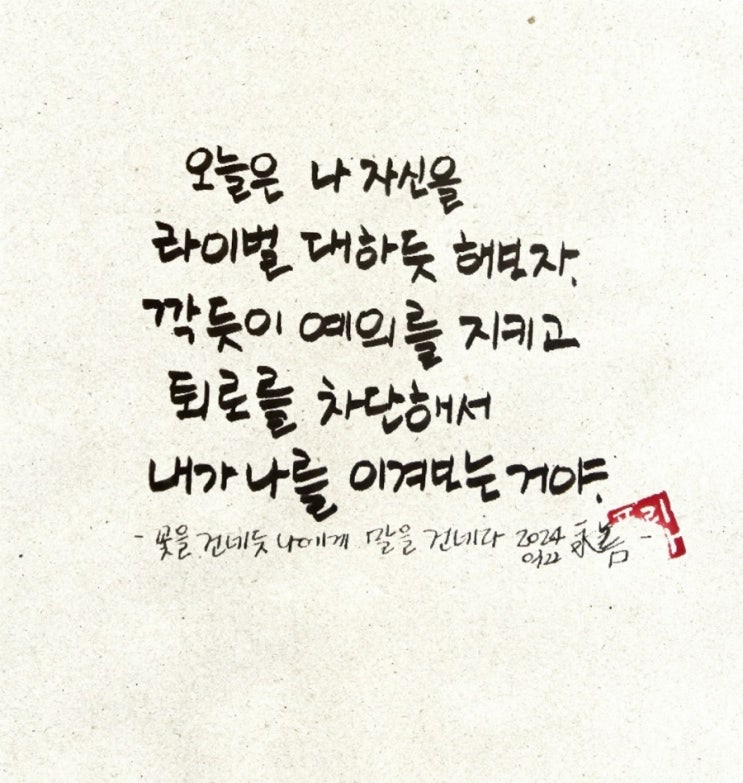 오늘은 나 자신을
라이벌 대하듯 해보자.
깍듯이 예의를 지키고
퇴로를 차단해서
내가 나를 이겨보는 거야.
- 꽃을 건네듯 나에게 말을 건네라 2024 -